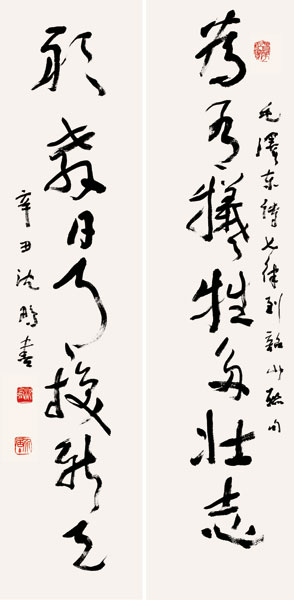 為有犧牲多壯志
毛澤东詩七律到韶山聯句
敢教日月換新天
辛丑沈鵬書